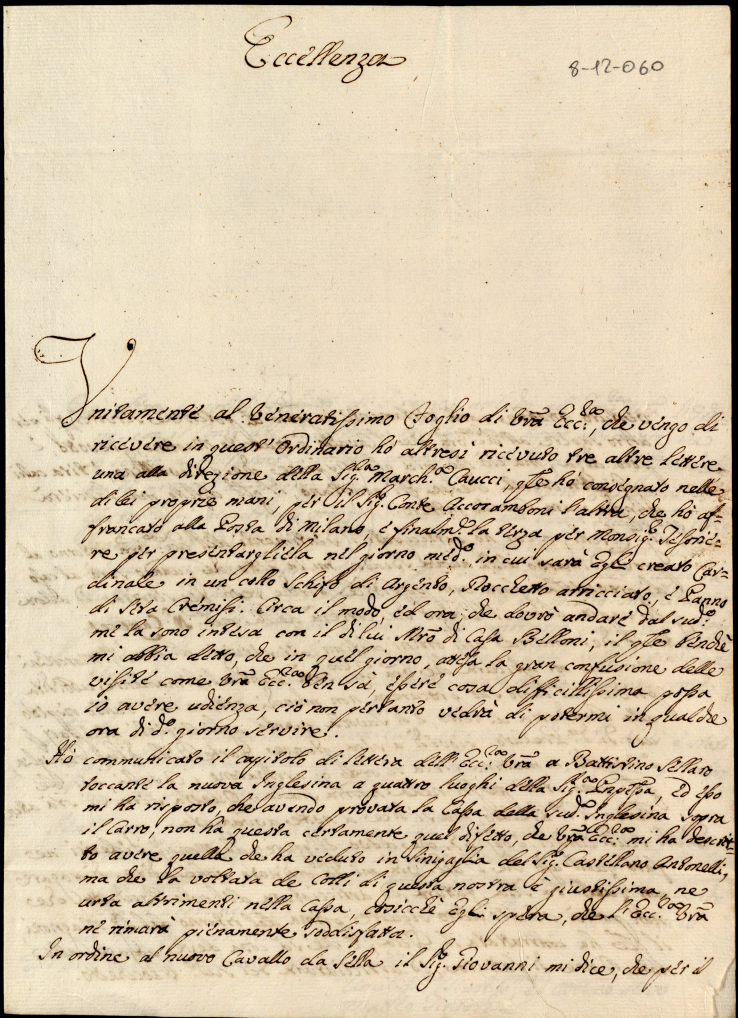 Eccellenza
8-12-060
Unitamente al Veneratissimo Foglio di Vrã Ecc.za, che vengo di
ricevere in quest'Ordinario hò altresi ricevuto tre altre lettere
una alla direzione della Sig.ra March.sa Caucci, qle hò consegnato nelle
di lei proprie mani, per il Sig. Conte Accoramboni l'altra, che hò af-
francato alla Posta di Milano, e finalm.te la terza per Monsig.r Tesorie-
re per presentargliela nel giorno med.o, in cui sarà Egli creato Car-
dinale in un cotto Schifo di Argento, Rocchetto arricciato, è Panno
di Seta Cremisi. Circa il modo, ed ora, che dovrò andare dal sud.o
me la sono intesa con il di lui Mrõ di Casa Belloni, il qle benche
mi abbia detto, che in quel giorno, attesa la gran confusione delle
visite come Vrã Ecc.za ben sà, essere cosa difficilissima possa
io avere udienza, ciò non pertanto vedrà di potermi in qualche
ora di d.o giorno servire.
Hò communicato il capitolo di lettera dell'Ecc.za Vrã a Battistino Sellaro
toccante la nuova Inglesina a quattro luoghi della Sig.ra Pnpessa, Ed esso
mi ha risposto, che avendo provata la Cassa della sud.a Inglesina sopra
il Carro, non ha questa certamente quel difetto, che Vrã Ecc.za mi ha descrit-
to avere quella che ha veduto in Sinigaglia del Sig. Castellano Antonelli,
ma che la voltata de Colli di questa nostra è giustissima, ne
urta altrimenti nella Cassa, cosicchè Egli spera, che l'Ecc.za Vrã
ne rimarà pienamente soddisfatta.
In ordine al nuovo Cavallo da Sella il Sig. Giovanni mi dice, che per il